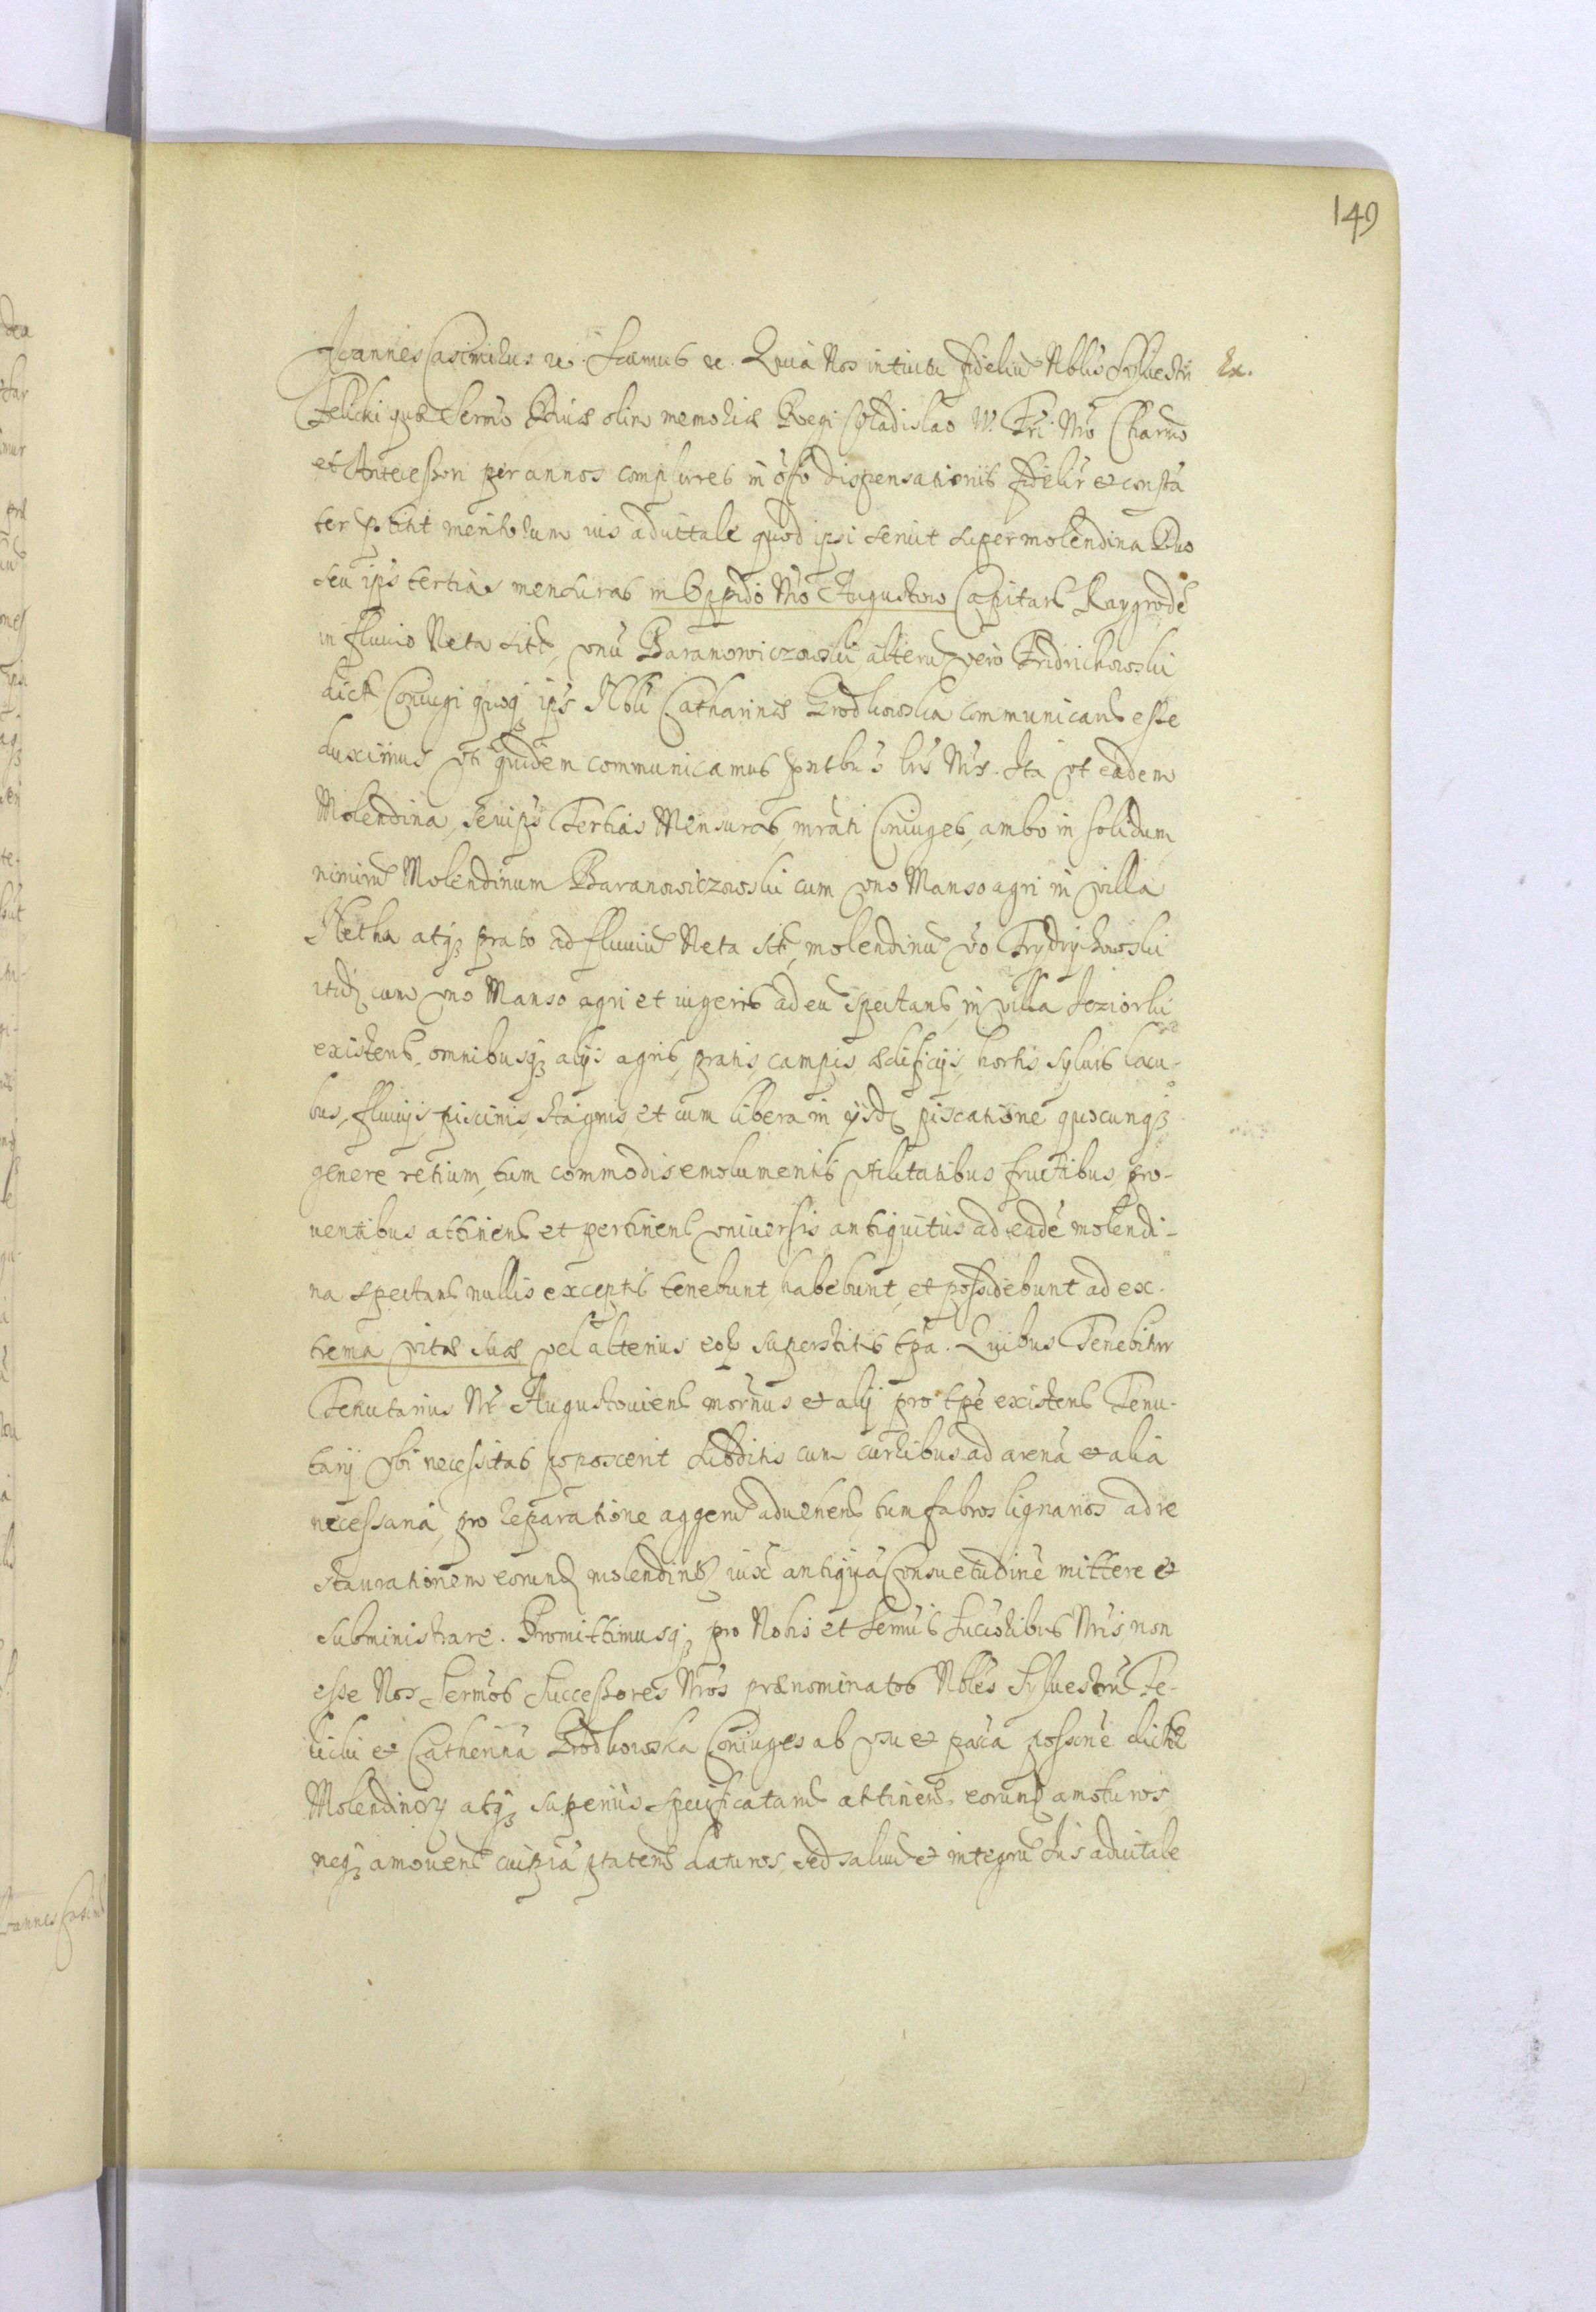 149
Joannes Casimirus &c. Scimus &c. Quia Nos intuitu fideliũ Nblis Syluestri Ex.
Felicki quæ Sermo Diuæ olim memoriæ Regi Vladislao IV. Fri Nro Charmo
et Antecessori per annos complures in offo dispensationis fidelir et constã
ter meritorum ius aduitale quod ipsi seruit super molendina Duo
seu ips tertias mensuras in Oppido Nro Augustow Capitats Raygrodẽ
in fluuio Neta sitt, vnũ Baranowiczowski alterũ vero Fridrichowski
dict Coniugi quoq ips Nbli Catharinæ Grodkowska communicand esse
duximus vti quidem communicamus pntbus lris Nris. Ita vt eadem
Molendina, seu ips Tertias Mensuras, mrati Coniuges, ambo in solidum
nimirũ Molendinum Baranowiczowski cum vno Manso agri in villa
Netha atq prato ad fluuiũ Neta sit, molendinũ vo Frydrychowski
itid cum vno Manso agri et iugeris ad eũ spectans in villa Jeziorki
existens, omnibusq alijs agris, pratis, campis, ædificijs, hortis, syluis, lacu-
bus, fluuijs, piscinis, stagnis, et cum libera in ijsd piscatione quocunq
genere retium, tum commodis emolumentis vtilitatibus fructibus, pro-
uentibus attinens et pertinens vniuersis antiquitus ad eadẽ molendi-
na spectans nullis exceptis tenebunt, habebunt, et possidebunt ad ex-
trema vitæ suæ vel alterius eor superstitis tpa. Quibus Tenebitur
Tenutarius Nr Augustouiens mornus et alij pro tpe existens Tenu-
tarij vbi necessitas poposcerit subditis cum curribus ad arenã et alia
necessaria, pro reparatione aggerũ aduehens tum fabros lignarios ad re
staurationem eorund molendinor iux antiquã Consuetudinẽ mittere et
subministrare. Promittimusq pro Nobis et Sermis Succribus Nris non
esse Nos Sermos Successores Nros prænominatos Nbles Syluestrũ Fe-
licki et Catherinã Grodkowska Coniuges ab vsu et pacca possnẽ dictor
Molendinor atq superius specificatarũ attinens, eorund amoturos
neq amouens cuipiã ptatem daturos, sed saluũ et integrũ Ius aduitale